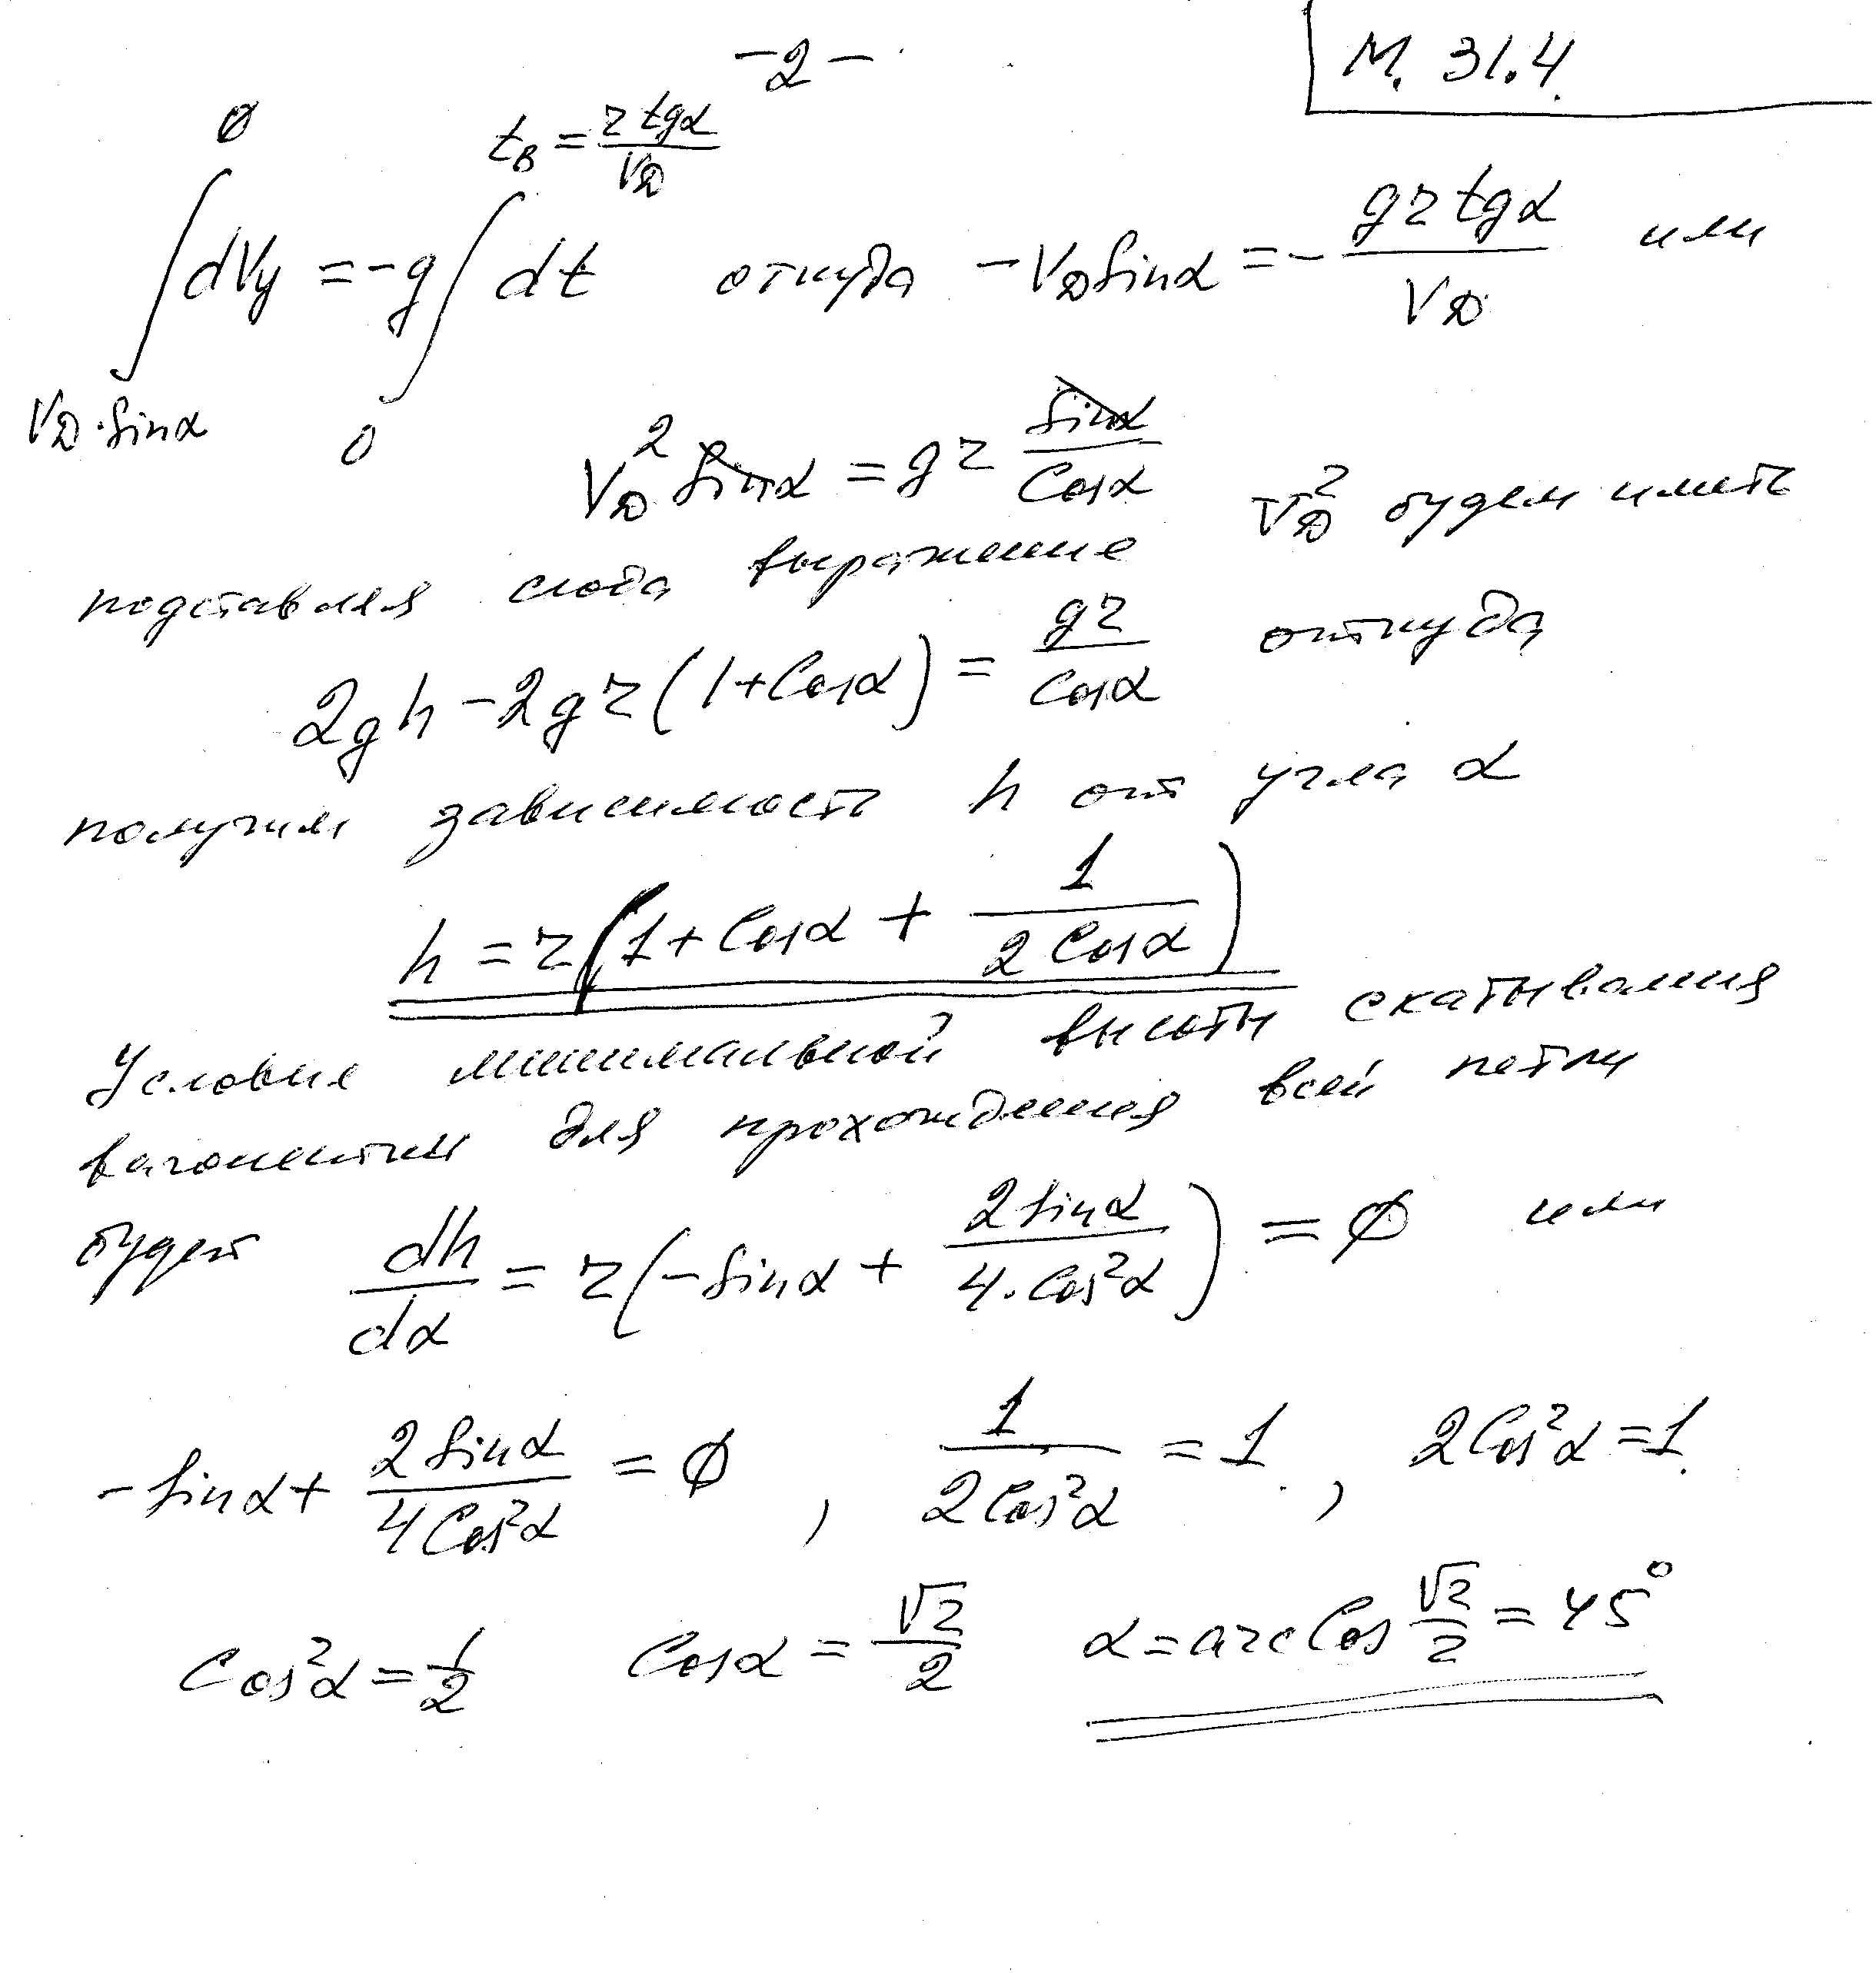 -2-
М. 31.4.
∫_{V_D·sinα}^{0} dVy = -g ∫_{0}^{t_B = r tgα / V_D} dt откуда -V_D sinα = - g r tgα / V_D или
V_D² sinα = g r sinα / cosα
подставляя сюда выражение V_D² будем иметь
2gh - 2gr(1+cosα) = gr / cosα откуда
получим зависимость h от угла α
h = r(1 + cosα + 1 / 2cosα)
Условие минимальной высоты скатывания
вагонетки для прохождения всей петли
будет dh/dα = r(-sinα + 2sinα / 4·cos²α) = 0 или
-sinα + 2sinα / 4cos²α = 0, 1 / 2cos²α = 1, 2cos²α = 1
cos²α = 1/2 cosα = √2/2 α = arccos √2/2 = 45°